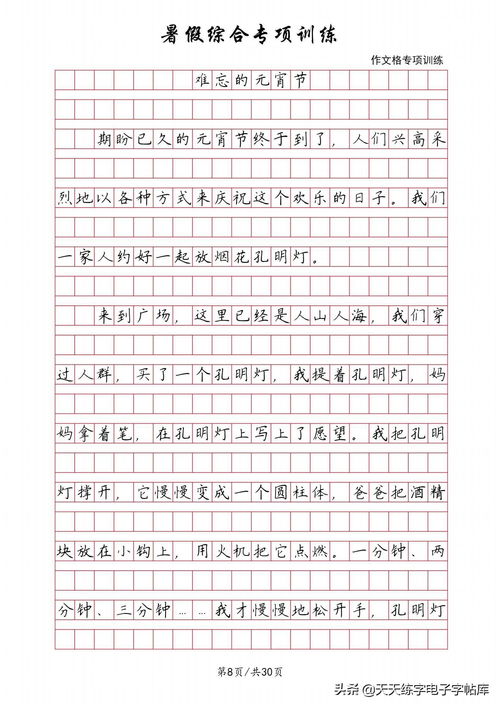 暑假综合专项训练
作文格专项训练
难忘的元宵节
期盼已久的元宵节终于到了，人们兴高采
烈地以各种方式来庆祝这个欢乐的日子。我们
一家人约好一起放烟花孔明灯。
来到广场，这里已经是人山人海，我们穿
过人群，买了一个孔明灯，我提着孔明灯，妈
妈拿着笔，在孔明灯上写上了愿望。我把孔明
灯撑开，它慢慢变成一个圆柱体，爸爸把酒精
块放在小钩上，用火机把它点燃。一分钟、两
分钟、三分钟……我才慢慢地松开手，孔明灯
第8页/共30页
头条@天天练字电子字帖库